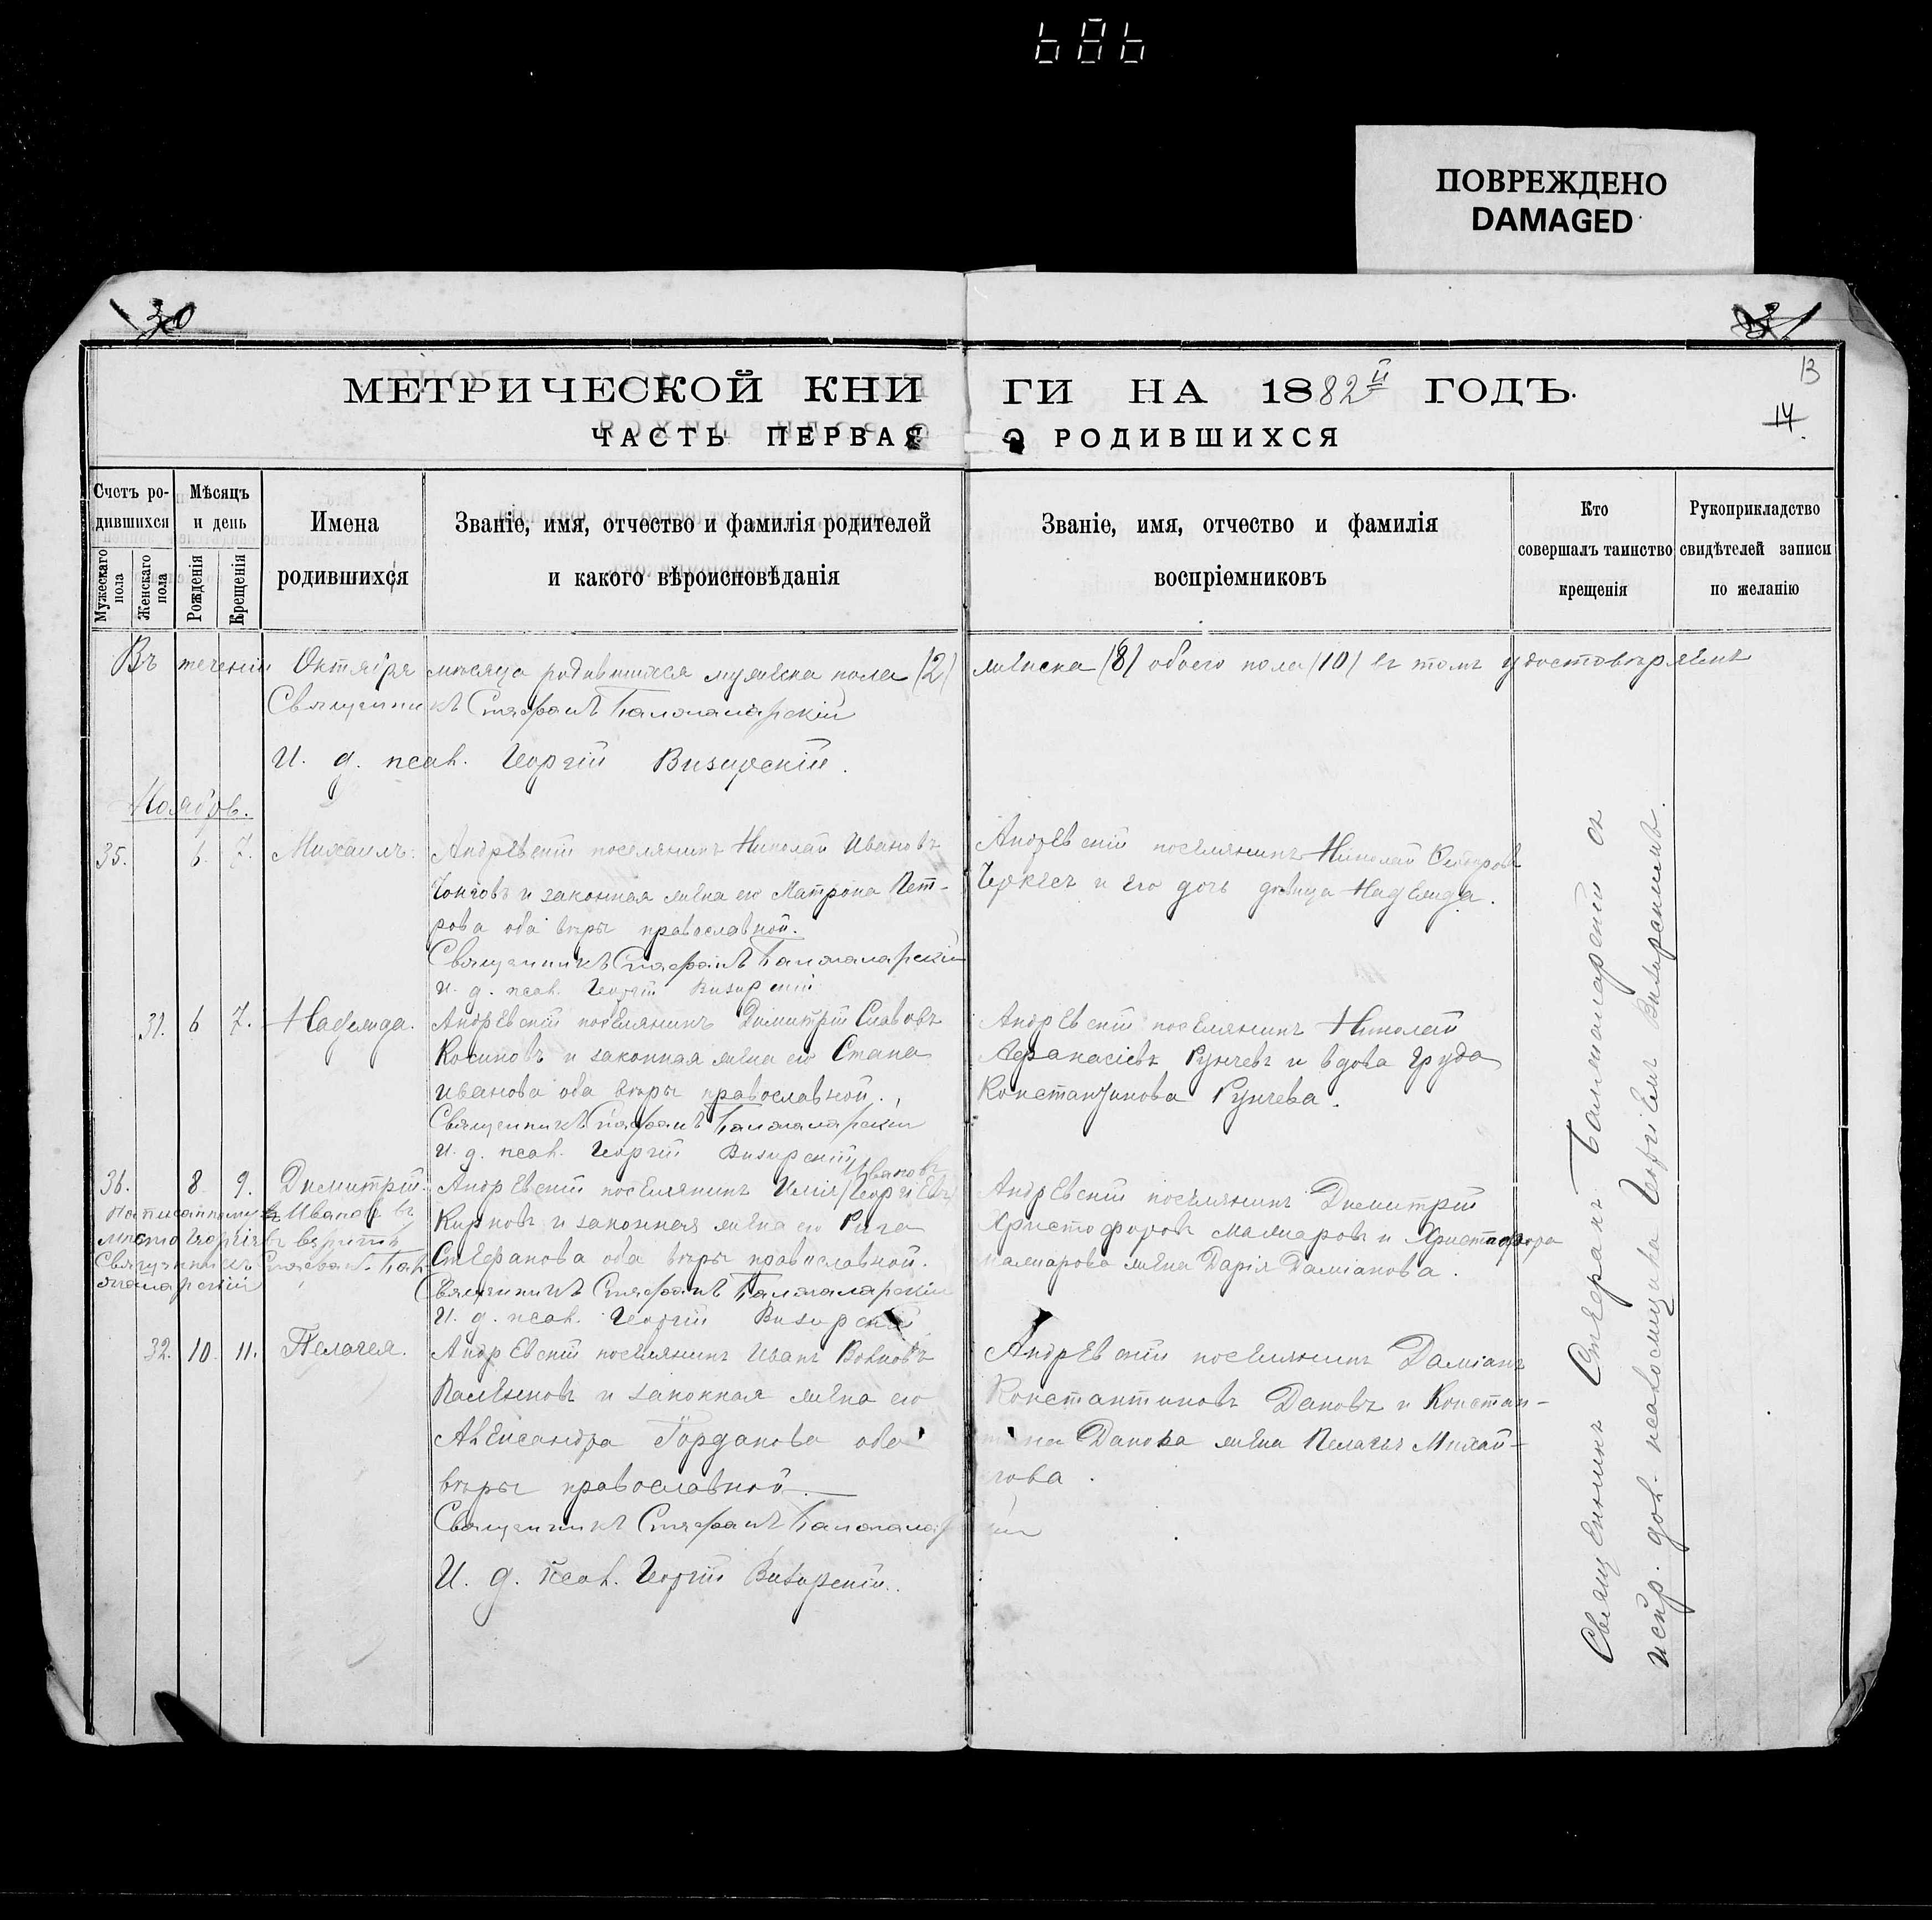 686
ПОВРЕЖДЕНО
DAMAGED
30
31
13
14
МЕТРИЧЕСКОЙ КНИ
ГИ НА 1882й ГОДЪ.
ЧАСТЬ ПЕРВАЯ
О РОДИВШИХСЯ
Счетъ ро-
дившихся
Мужескаго пола
Женскаго пола
Мѣсяцъ
и день
Рожденія
Крещенія
Имена
родившихся
Званіе, имя, отчество и фамилія родителей
и какого вѣроисповѣданія
Званіе, имя, отчество и фамилія
воспріемниковъ
Кто
совершалъ таинство
крещенія
Рукоприкладство
свидѣтелей записи
по желанію
Въ теченіи Октября мѣсяца родившихся мужеска пола (2) женска (8) обоего пола (10) въ томъ удостовѣряемъ
Священникъ Стефанъ
И. д. псал. Георгій Визирскій.
Ноябрь.
35. 6. 7. Михаилъ.
Андреевскій поселянинъ Николай Ивановъ
и законная жена его Матрона Пет-
рова оба вѣры православной.
Священникъ Стефанъ
И. д. псал. Георгій Визирскій
Андреевскій поселянинъ Николай
Черкезъ и его дочь дѣвица Надежда.
31. 6 7. Надежда.
Андреевскій поселянинъ Димитрій Славовъ
и законная жена его Стана
Иванова оба вѣры православной.
Священникъ Стефанъ
И. д. псал. Георгій Визирскій
Андреевскій поселянинъ Николай
Афанасіевъ Рунчевъ и вдова Груда
Константинова Рунчева.
36. 8 9. Димитрій.
Написанному Ивановъ въ
мѣсто Георгіевъ вѣрить
Священникъ Стефанъ
Ивановъ
Андреевскій поселянинъ Илія (Георгіевъ)
Курновъ и законная жена его
Стефанова оба вѣры православной.
Священникъ Стефанъ
И. д. псал. Георгій Визирскій
Андреевскій поселянинъ Димитрій
Христофоровъ и Христофора
жена Дарія Даміанова.
32. 10. 11. Пелагея.
Андреевскій поселянинъ Иванъ Волковъ
и законная жена его
Александра Іорданова оба
вѣры православной.
Священникъ Стефанъ
И. д. псал. Георгій Визирскій.
Андреевскій поселянинъ Даміанъ
Константиновъ Дановъ и Констан-
на Данова жена Пелагея Михай-
лова.
Священникъ Стефанъ съ
испр. дол. псаломщика Георгіемъ Визирскимъ.